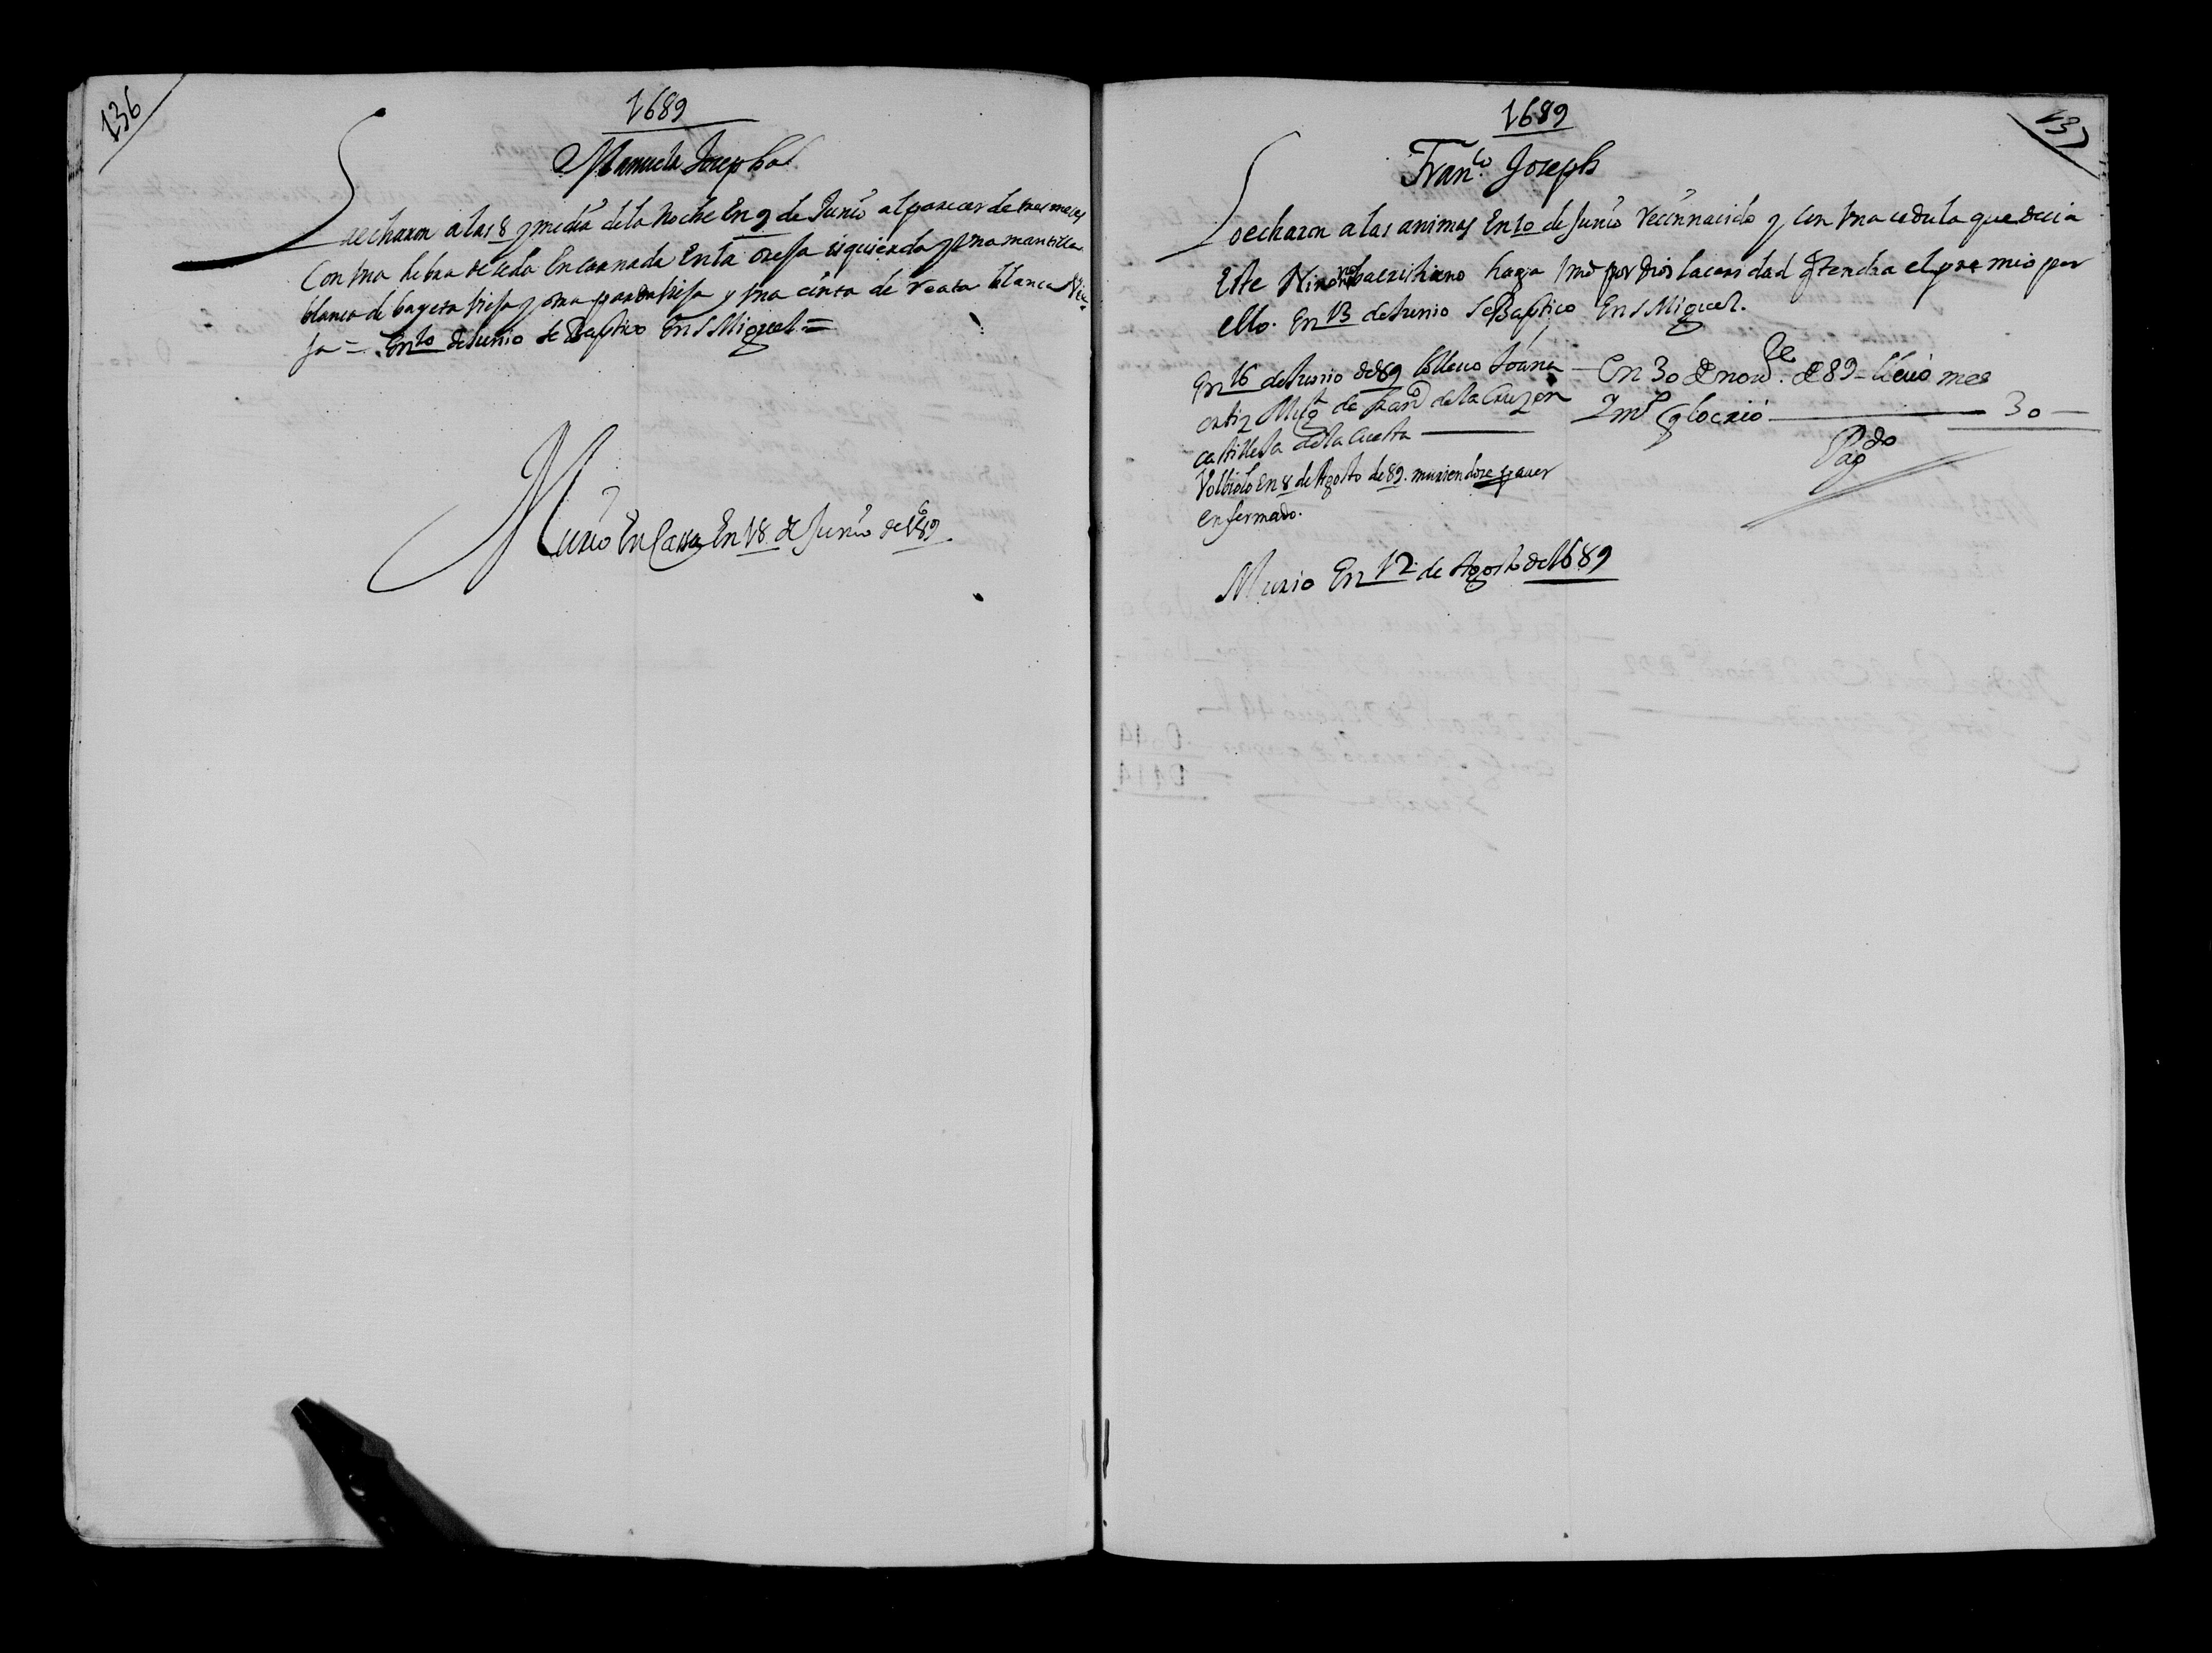 136
1689
Manuela Josepha
La echaron a las 8 y media de la noche En 9 de Junio al parecer de tres meses
Con vna hebra de seda Encarnada En la oreja isquierda y vna mantilla
blanca de bayeta vieja y otra parda vieja y vna cinta de reata blanca Vie-
ja = En 10 de Junio se Baptiço En S Miguel =
Murio En Cassa En 18 de Junio de 1689
137
1689
Franco Joseph
Lo echaron a las animas En 10 de Junio recien nacido y con vna cedula que decia
Este Niño no ba cristiano haga vmd por Dios la caridad q tendra el premio por
ello. En 13 de Junio se Baptico En S Miguel.
En 16 de Junio de 89 lo lleuo Joana
ortiz Muger de Franco de la Cruz en
castilleja de la Cuesta
Volbiolo En 8 de Agosto de 89. muriendose p auer
enfermado.
En 30 de nove. de 89 - lleuo mes
y mo q lo crió 30
Pagdo
Murio En 12 de Agosto de 1689